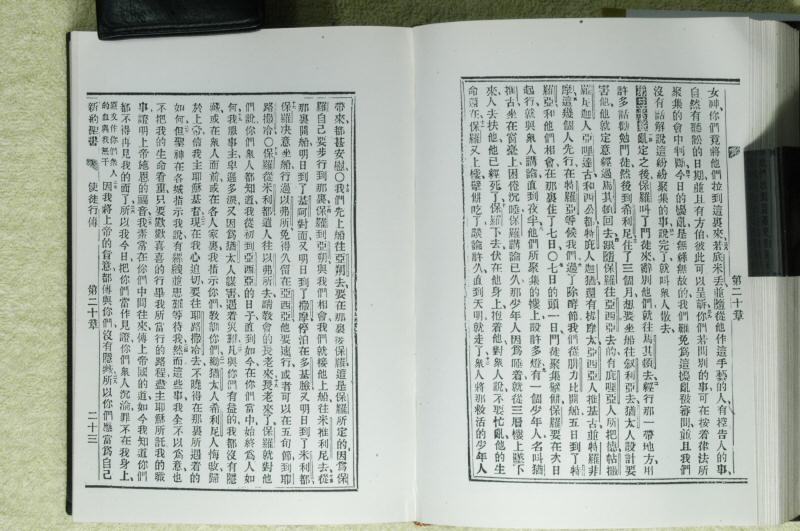 女神、你們竟將他們拉到這裏來若底米丟並隨從他作這手藝的人、有控告人的事、
自然有聽訟的日期、並且有方伯、彼此可以呈訴、你們若問別的事可在按着律法所
聚集的會中判斷今日的擾亂是無緣無故的我們難免爲這擾亂被審問、並且我們
沒有話解說這紛紛聚集的事說完了就叫衆人散去
第二十章亂定之後保羅叫了門徒來辭別他們就往馬其頓去、經行那一帶地方用
許多話勸勉門徒然後到希利尼住了三個月、想要坐船往叙利亞去猶太人設計要
害他他就定意經過馬其頓回去跟隨保羅往亞西亞去的有庇哩亞人所把德帖撒
羅尼迦人亞哩達古和西公都特庇人迦猶還有提摩太亞西亞人推基古並特羅非
摩這幾個人先行在特羅亞等候我們過了除酵節我們從腓力比開船五日到了特
羅亞和他們相會在那裏住了七日○七日的頭一日門徒聚集擘餅保羅要在次日
起行就與衆人講論直到夜半他們所聚集的樓上設許多燈有一個少年人名叫猶
推古坐在窗臺上困倦沉睡保羅講論已久那少年人因爲睡着就從三層樓上墜下
來人去扶他他已經死了保羅下去伏在他身上抱着他對衆人說不要忙亂他的生
命還在保羅又上樓擘餅吃了談論許久直到天明就走了衆人將那救活的少年人
第二十章
帶來都甚安慰○我們先上船往亞朔去要在那裏接保羅這是保羅所定的因爲保
羅自己要步行到那裏保羅到亞朔與我們相會我們就接他上船往米推利尼去從
那裏開船明日到了基阿對面又明日到了撒摩停泊在多基臉又明日到了米利都
保羅决意坐船行過以弗所免得久留在亞西亞他要速行或者可以在五旬節到耶
路撒冷○保羅從米利都遣人往以弗所去請敎會的長老來長老來了保羅就對他
們說你們衆人都知道我從初到亞西亞的日子直到如今在你們當中始終爲人如
何我服事主卑遜多淚又因爲猶太人謀害遇着災難凡與你們有益的我都沒有隱
藏或在衆人面前或在各人家裏我指示你們教訓你們勸猶太人希利尼人悔改歸
於上帝信我主耶穌基督現在我心迫切要往耶路撒冷去不曉得在那裏所遇着的
如何但聖神在各城指示我說有縲絏並患難等待我然而這些事我全不以爲意也
不把我的生命看重只要歡歡喜喜的行畢我所當行的路程盡主耶穌所託我的職
事證明上帝施恩的福音我素常在你們中間往來傳上帝國的道如今我知道你們
都不得再見我的面了所以我今日把你們當作見證你們衆人沉淪罪不在我身上
因我將上帝的旨意都傳與你們沒有隱藏所以你們應當爲自己
新約聖書
使徒行傳
第二十章
二十三